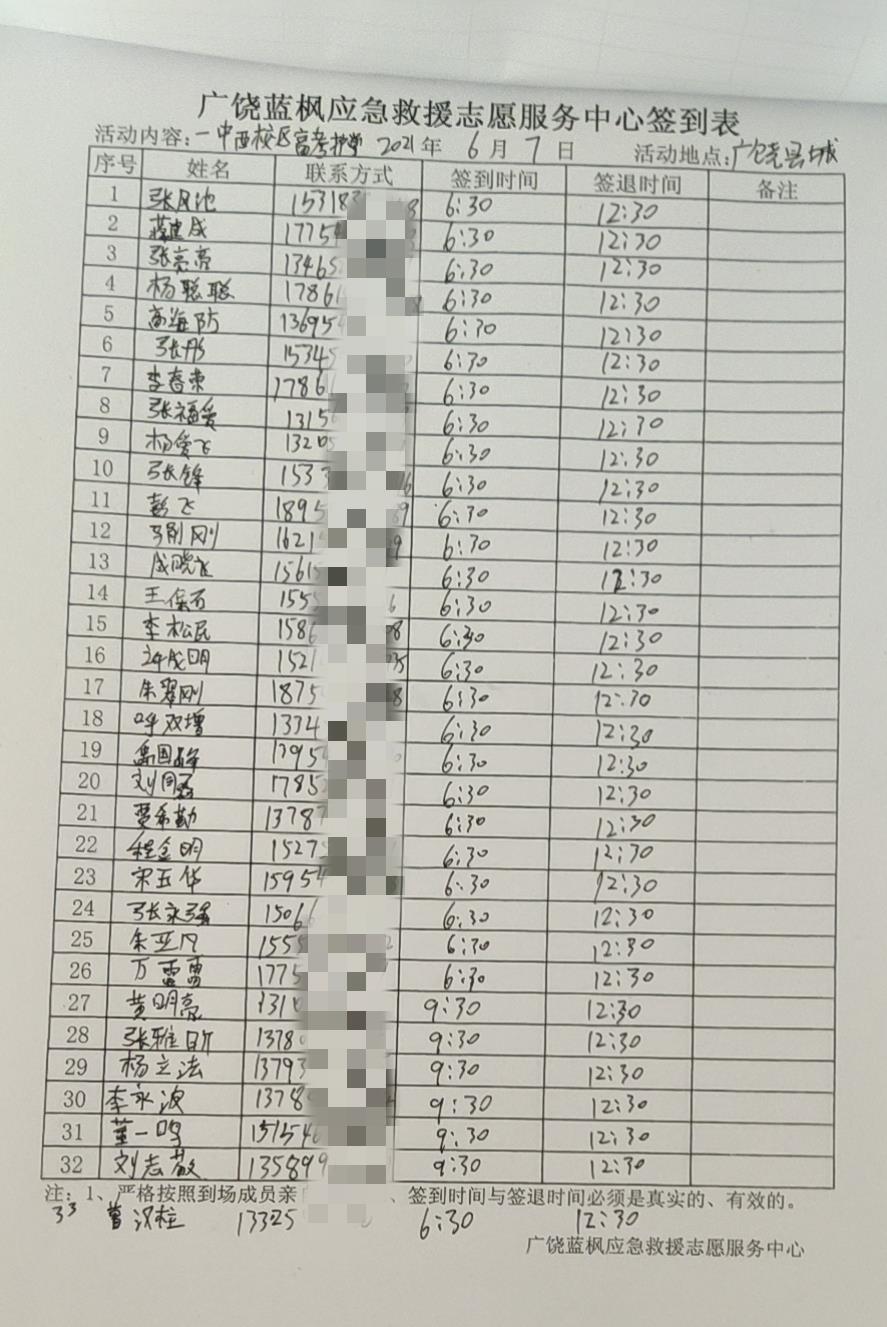 广饶蓝枫应急救援志愿服务中心签到表
活动内容:一中西校区高考护学 2021年 6月 7日 活动地点:广饶县城
序号 姓名 联系方式 签到时间 签退时间 备注
1 张凤池 15318 8 6:30 12:30
2 建成 1775 6:30 12:30
3 张亮亮 13465 6:30 12:30
4 杨聪聪 1786 8 6:30 12:30
5 高海防 13695 6:30 12:30
6 张彤 15345 6:30 12:30
7 李春荣 1786 6:30 12:30
8 张福爱 1315 6:30 12:30
9 杨爱飞 13205 6:30 12:30
10 张锋 1533 6 6:30 12:30
11 彭飞 1895 89 6:30 12:30
12 刚 1621 9 6:30 12:30
13 成晓飞 1561 6:30 12:30
14 王保石 155 6 6:30 12:30
15 李松民 158 08 6:30 12:30
16 许成明 1521 35 6:30 12:30
17 朱翠刚 1875 8 6:30 12:30
18 呼双增 1334 6:30 12:30
19 国峰 1395 6:30 12:30
20 刘同磊 1785 6:30 12:30
21 贾希勤 1378 6:30 12:30
22 程金明 1527 6:30 12:30
23 宋玉华 15954 6:30 12:30
24 张永强 1506 6:30 12:30
25 朱亚凡 155 6:30 12:30
26 万雷雷 1775 6:30 12:30
27 黄明亮 131 9:30 12:30
28 张雅昕 1378 9:30 12:30
29 杨立法 13793 9:30 12:30
30 李永波 1378 9:30 12:30
31 董一鸣 15154 9:30 12:30
32 刘志敬 135899 9:30 12:30
注:1、严格按照到场成员亲 、签到时间与签退时间必须是真实的、有效的。
33 曹汉柱 13325 6:30 12:30
广饶蓝枫应急救援志愿服务中心